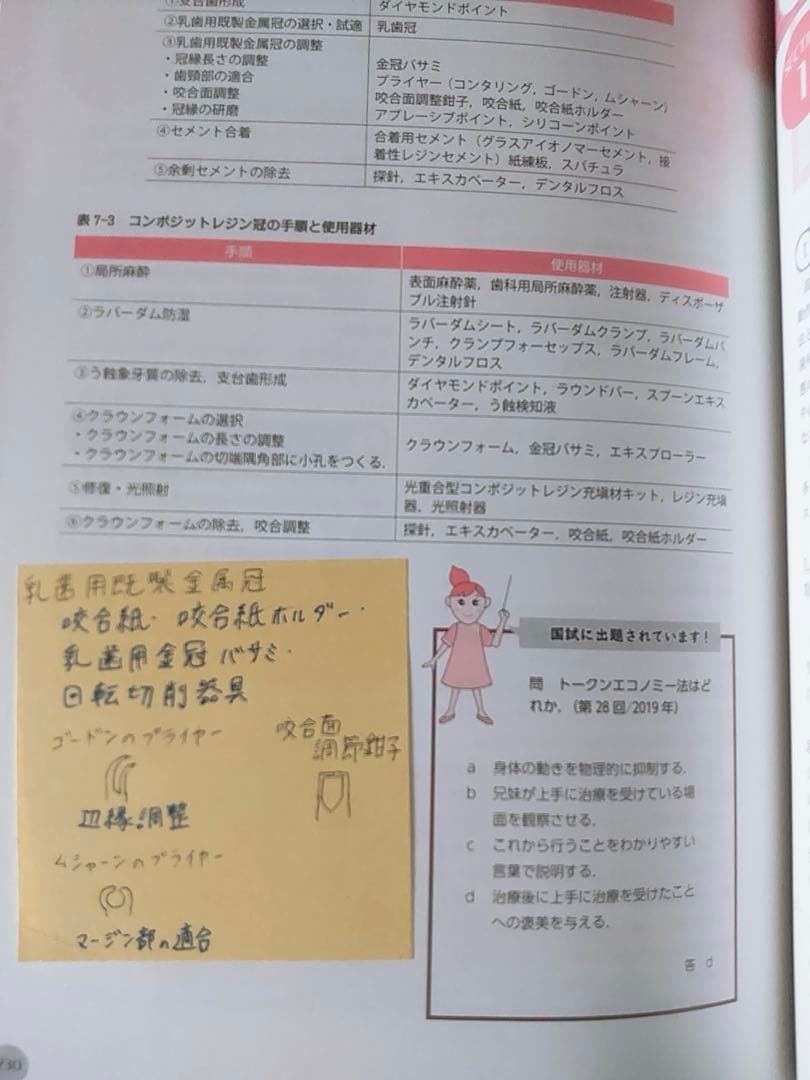 ①支台歯形成
ダイヤモンドポイント
②乳歯用既製金属冠の選択・試適
乳歯冠
③乳歯用既製金属冠の調整
・冠縁長さの調整
・歯頸部の適合
・咬合面調整
・冠縁の研磨
金冠バサミ
プライヤー（コンタリング，ゴードン，ムシャーン）
咬合面調整鉗子，咬合紙，咬合紙ホルダー
アブレーシブポイント，シリコーンポイント
④セメント合着
合着用セメント（グラスアイオノマーセメント，接
着性レジンセメント）紙練板，スパチュラ
⑤余剰セメントの除去
探針，エキスカベーター，デンタルフロス
表7-3 コンポジットレジン冠の手順と使用器材
手順
使用器材
①局所麻酔
表面麻酔薬，歯科用局所麻酔薬，注射器，ディスポーザ
ブル注射針
②ラバーダム防湿
ラバーダムシート，ラバーダムクランプ，ラバーダムパ
ンチ，クランプフォーセップス，ラバーダムフレーム，
デンタルフロス
③う蝕象牙質の除去，支台歯形成
ダイヤモンドポイント，ラウンドバー，スプーンエキス
カベーター，う蝕検知液
④クラウンフォームの選択
・クラウンフォームの長さの調整
・クラウンフォームの切端隅角部に小孔をつくる．
クラウンフォーム，金冠バサミ，エキスプローラー
⑤修復・光照射
光重合型コンポジットレジン充塡材キット，レジン充塡
器，光照射器
⑥クラウンフォームの除去，咬合調整
探針，エキスカベーター，咬合紙，咬合紙ホルダー
乳歯用既製金属冠
咬合紙・咬合紙ホルダー・
乳歯用金冠バサミ・
回転切削器具
ゴードンのプライヤー
咬合面
調節鉗子
調整
ムシャーンのプライヤー
マージン部の適合
国試に出題されています！
問 トークンエコノミー法はど
れか．（第28回/2019年）
a 身体の動きを物理的に抑制する．
b 兄妹が上手に治療を受けている場
面を観察させる．
c これから行うことをわかりやすい
言葉で説明する．
d 治療後に上手に治療を受けたこと
への褒美を与える．
答 d
730